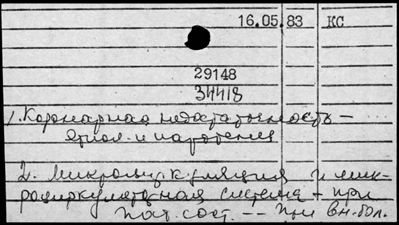 16.05.83 КС
29148
34418
1. Коронарная недостаточность —
этиол. и патогенез
2. Микроциркуляция и мик-
роциркуляторная система – при
пат. сост. -- При вн. бол.